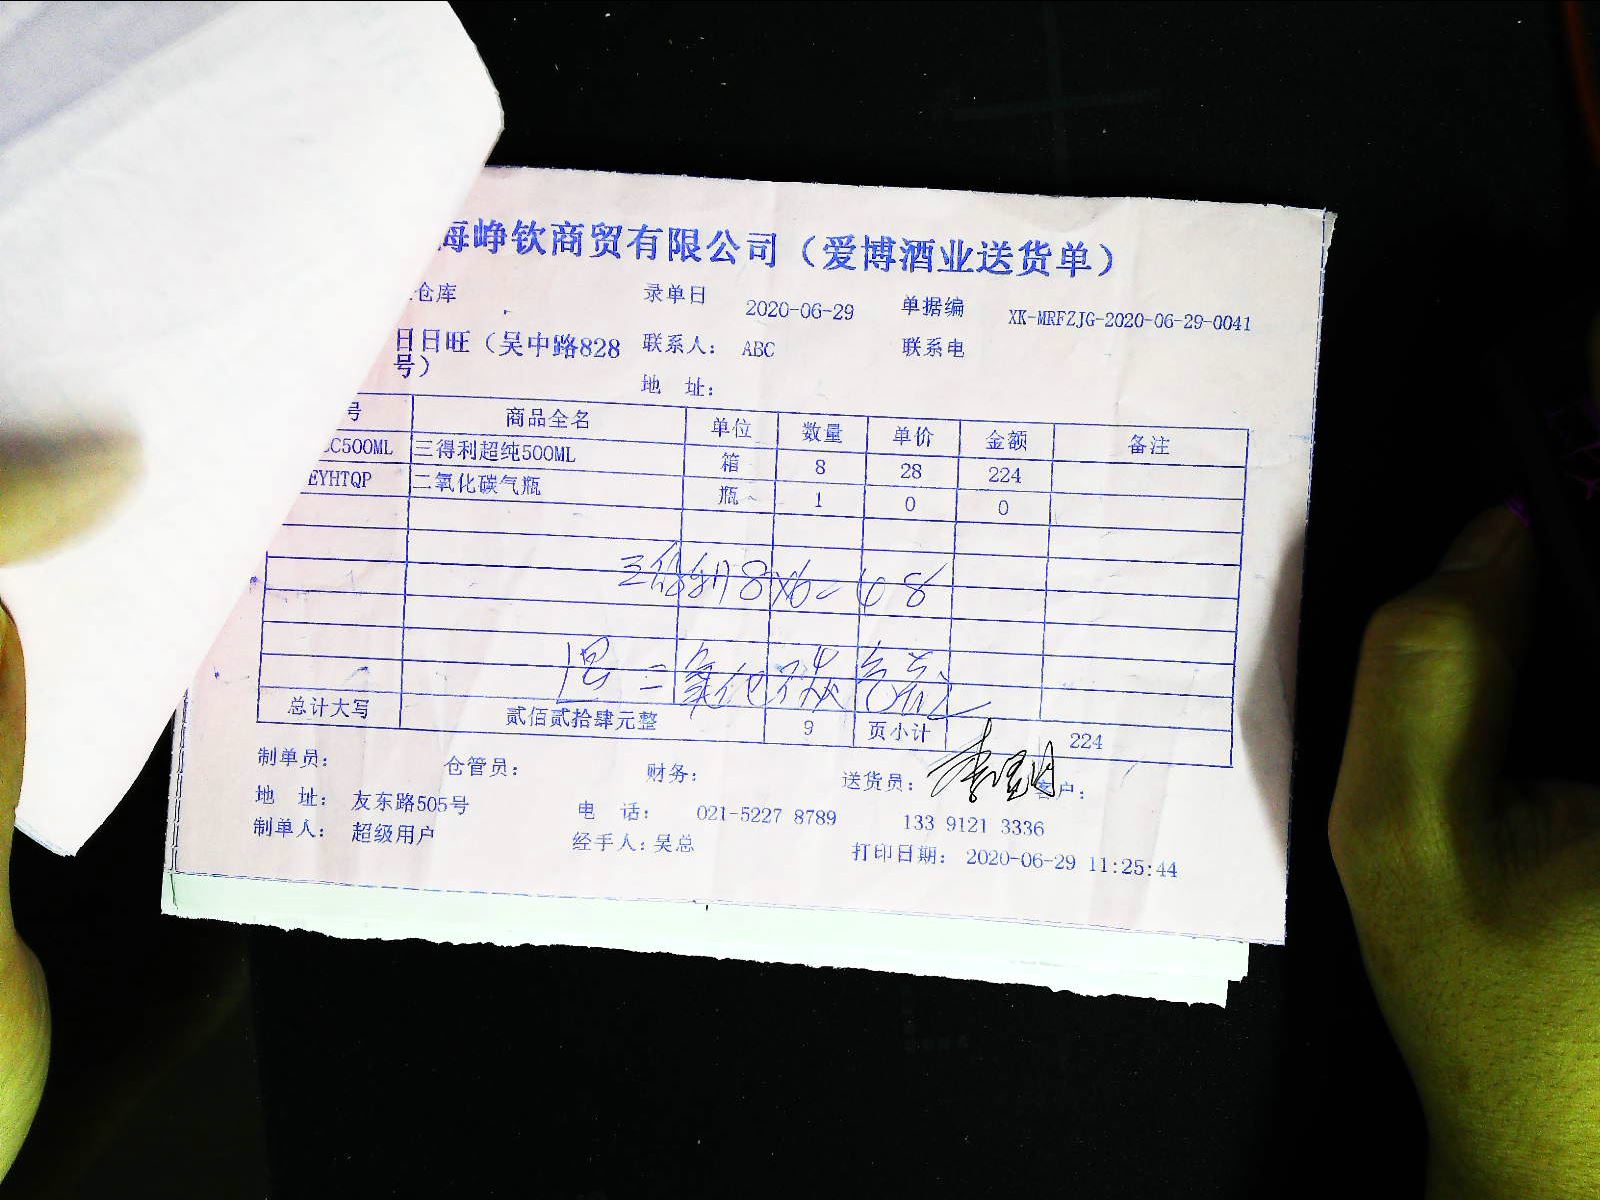 海峥钦商贸有限公司（爱博酒业送货单）
仓库 录单日 2020-06-29 单据编 XK-MRFZJG-2020-06-29-0041
日日旺（吴中路828号） 联系人： ABC 联系电
地 址：
号 商品全名 单位 数量 单价 金额 备注
C500ML 三得利超纯500ML 箱 8 28 224
EYHTQP 二氧化碳气瓶 瓶 1 0 0
8X6= 48
二氧化碳气瓶
总计大写 贰佰贰拾肆元整 9 页小计 224
制单员： 仓管员： 财务： 送货员： 客户：
地 址： 友东路505号 电 话： 021-5227 8789 133 9121 3336
制单人： 超级用户 经手人：吴总 打印日期： 2020-06-29 11:25:44